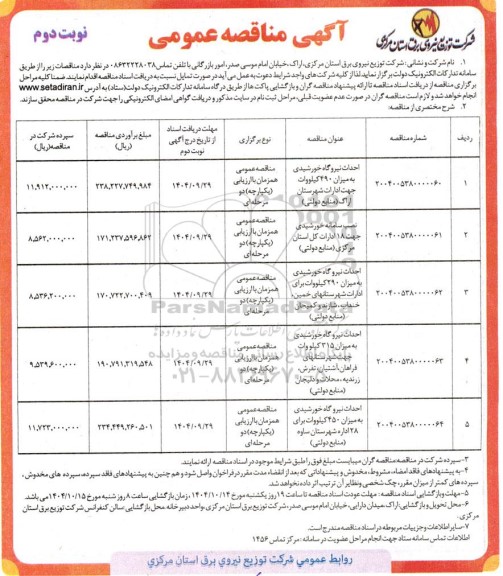 آگهی مناقصه عمومی
نوبت دوم
شرکت توزیع نیروی برق استان مرکزی
۱. نام شرکت و نشانی: شرکت توزیع نیروی برق استان مرکزی، اراک، خیابان امام موسی صدر، امور بازرگانی با تلفن تماس ۰۸۶۳۲۲۲۸۰۳۸ در نظر دارد مناقصات زیر را از طریق
سامانه تدارکات الکترونیک دولت برگزار نماید لذا از کلیه شرکت های واجد شرایط دعوت به عمل می آید در صورت تمایل نسبت به دریافت اسناد مناقصه اقدام نمایند. ضمنا کلیه مراحل
برگزاری مناقصه از دریافت اسناد مناقصه تا ارائه پیشنهاد مناقصه گران و بازگشایی پاکت ها از طریق درگاه سامانه تدارکات الکترونیک دولت (ستاد) به آدرس www.setadiran.ir
انجام خواهد شد و لازم است مناقصه گران در صورت عدم عضویت قبلی، مراحل ثبت نام در سایت مذکور و دریافت گواهی امضای الکترونیکی را جهت شرکت در مناقصه محقق سازند.
۲. شرح مختصری از مناقصه:
ردیف | شماره مناقصه | عنوان مناقصه | نوع برگزاری | مهلت دریافت اسناد از تاریخ درج آگهی نوبت دوم | مبلغ برآوردی مناقصه (ریال) | سپرده شرکت در مناقصه (ریال)
۱ | ۲۰۰۴۰۰۵۳۸۰۰۰۰۰۶۰ | احداث نیروگاه خورشیدی به میزان ۴۹۰ کیلووات جهت ادارات شهرستان اراک (منابع دولتی) | مناقصه عمومی همزمان با ارزیابی (یکپارچه) دو مرحله ای | ۱۴۰۴/۰۹/۲۹ | ۲۳۸,۲۲۷,۷۴۹,۹۸۴ | ۱۱,۹۱۲,۰۰۰,۰۰۰
۲ | ۲۰۰۴۰۰۵۳۸۰۰۰۰۰۶۱ | نصب سامانه خورشیدی جهت ۱۸ ادارات کل استان مرکزی (منابع دولتی) | مناقصه عمومی همزمان با ارزیابی (یکپارچه) دو مرحله ای | ۱۴۰۴/۰۹/۲۹ | ۱۷۱,۲۳۷,۵۹۶,۸۶۲ | ۸,۵۶۲,۰۰۰,۰۰۰
۳ | ۲۰۰۴۰۰۵۳۸۰۰۰۰۰۶۲ | احداث نیروگاه خورشیدی به میزان ۲۹۰ کیلووات برای ادارات شهرستانهای خمین، خنداب، شازند و کمیجان (منابع دولتی) | مناقصه عمومی همزمان با ارزیابی (یکپارچه) دو مرحله ای | ۱۴۰۴/۰۹/۲۹ | ۱۷۰,۷۲۲,۷۰۰,۴۰۹ | ۸,۵۳۶,۰۰۰,۰۰۰
۴ | ۲۰۰۴۰۰۵۳۸۰۰۰۰۰۶۳ | احداث نیروگاه خورشیدی به میزان ۳۱۵ کیلووات جهت شهرستانهای فراهان، آشتیان، تفرش، زرندیه، محلات و دلیجان (منابع دولتی) | مناقصه عمومی همزمان با ارزیابی (یکپارچه) دو مرحله ای | ۱۴۰۴/۰۹/۲۹ | ۱۹۰,۷۹۱,۳۱۹,۵۴۸ | ۹,۵۳۹,۶۰۰,۰۰۰
۵ | ۲۰۰۴۰۰۵۳۸۰۰۰۰۰۶۴ | احداث نیروگاه خورشیدی به میزان ۴۵۰ کیلووات برای ۲۸ اداره شهرستان ساوه (منابع دولتی) | مناقصه عمومی همزمان با ارزیابی (یکپارچه) دو مرحله ای | ۱۴۰۴/۰۹/۲۹ | ۲۳۴,۴۴۹,۲۶۰,۵۰۱ | ۱۱,۷۲۳,۰۰۰,۰۰۰
۳-سپرده شرکت در مناقصه: مناقصه گران میبایست مبلغ فوق را طبق شرایط موجود در اسناد مناقصه ارائه نمایند.
۴-به پیشنهادهای فاقد امضاء، مشروط، مخدوش و پیشنهاداتی که بعد از انقضاء مدت مقرر در فراخوان واصل شود و هم چنین به پیشنهادهای فاقد سپرده، سپرده های مخدوش،
سپرده های کمتر از میزان مقرر، چک شخصی و نظایر آن ترتیب اثر داده نخواهد شد.
۵-مهلت و بازگشایی اسناد مناقصه: مهلت عودت اسناد مناقصه تا ساعت ۱۹ روز یکشنبه مورخ ۱۴۰۴/۱۰/۱۴ زمان بازگشایی ساعت ۸ روز شنبه مورخ ۱۴۰۴/۱۰/۱۵ می باشد.
۶-محل تحویل و بازگشایی: اراک، میدان دارایی، خیابان امام موسی صدر، شرکت توزیع نیروی برق استان مرکزی، واحد دبیرخانه محل بازگشایی سالن کنفرانس شرکت توزیع برق استان
مرکزی.
۷-سایر اطلاعات و جزییات مربوطه در اسناد مناقصه مندرج است.
اطلاعات تماس سامانه ستاد جهت انجام مراحل عضویت در سامانه: مرکز تماس ۱۴۵۶
روابط عمومی شرکت توزیع نیروی برق استان مرکزی